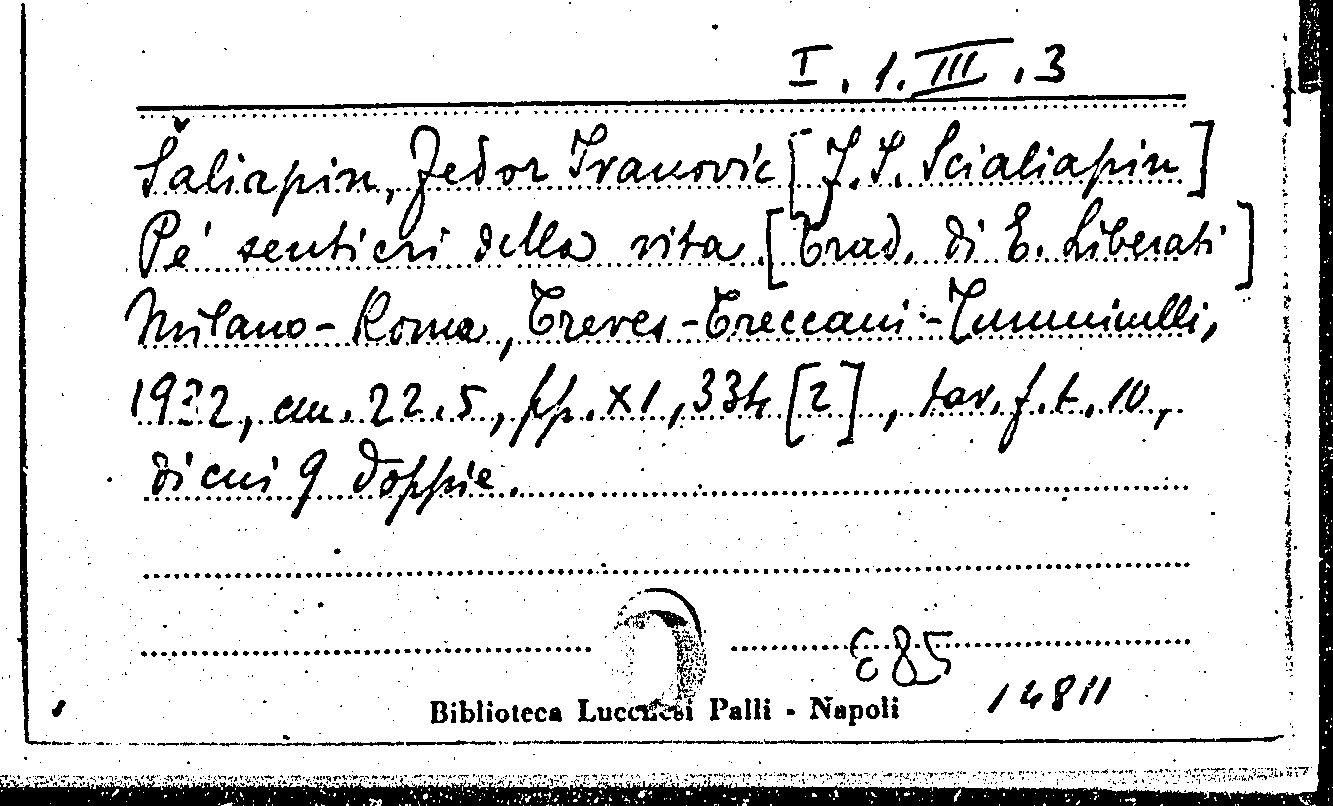 I.1.III.3
Šaliapin, Fedor Ivanovic [F. I. Scialiapin]
Pe' sentieri della vita. [Trad. di E. Liberati]
Milano-Roma, Treves-Treccani-Tumminelli,
1932, cm. 22.5, pp. XI, 334 [2], tav. f. t. 10,
di cui 9 doppie.
E85
14811
Biblioteca Lucchesi Palli - Napoli